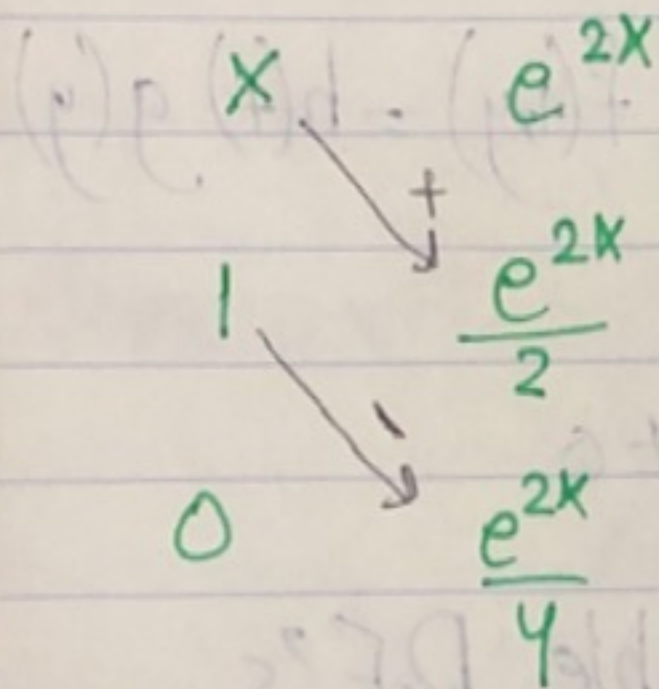 x e^{2x}
+
1 \frac{e^{2x}}{2}
-
0 \frac{e^{2x}}{4}